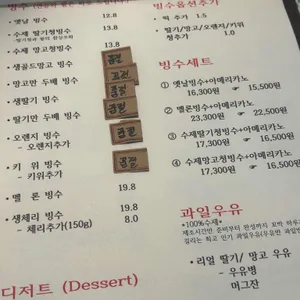 빙수
빙수옵션추가
• 옛날 빙수 12.8
• 떡 추가 1.5
• 수제 딸기청빙수 13.8
• 딸기/망고/오렌지/키위
청추가 1.0
• 수제 망고청빙수 13.8
• 생골드망고 빙수 품절
빙수세트
• 망고만 두배 빙수 품절
① 옛날빙수+아메리카노
16,300원 ☞ 15,500원
• 생딸기 빙수 품절
② 멜론빙수+아메리카노
23,300원 ☞ 22,500원
• 딸기만 두배 빙수 품절
③ 수제딸기청빙수+아메리카노
17,300원 ☞ 16,500원
• 오렌지 빙수 품절
- 오렌지추가
④ 수제망고청빙수+아메리카노
17,300원 ☞ 16,500원
• 키 위 빙수 품절
- 키위추가
• 멜 론 빙수 19.8
• 생체리 빙수 19.8
- 체리추가(150g) 8.0
과일우유
*100%수제*
• 리얼 딸기/ 망고 우유
- 우유병
머그잔
디저트 (Dessert)